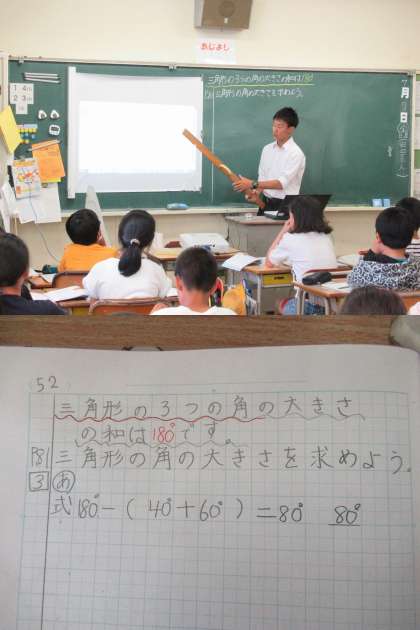 めあてし
三角形の3つの角の大きさの和は180
三角形の角の大きさを求めよう。
52
三角形の3つの角の大きさ
の和は180°です。
P81 三角形の角の大きさを求めよう。
3 あ
式 180°-(40°+60°)=80° 80°